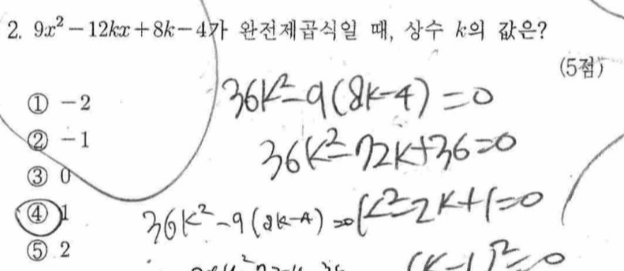 2. 9x² - 12kx + 8k - 4가 완전제곱식일 때, 상수 k의 값은?
(5점)
① -2
② -1
③ 0
④ 1
⑤ 2
36k² - 9(8k-4) = 0
36k² - 72k + 36 = 0
36k² - 9(8k-4) = 0
k² - 2k + 1 = 0
(k-1)² = 0